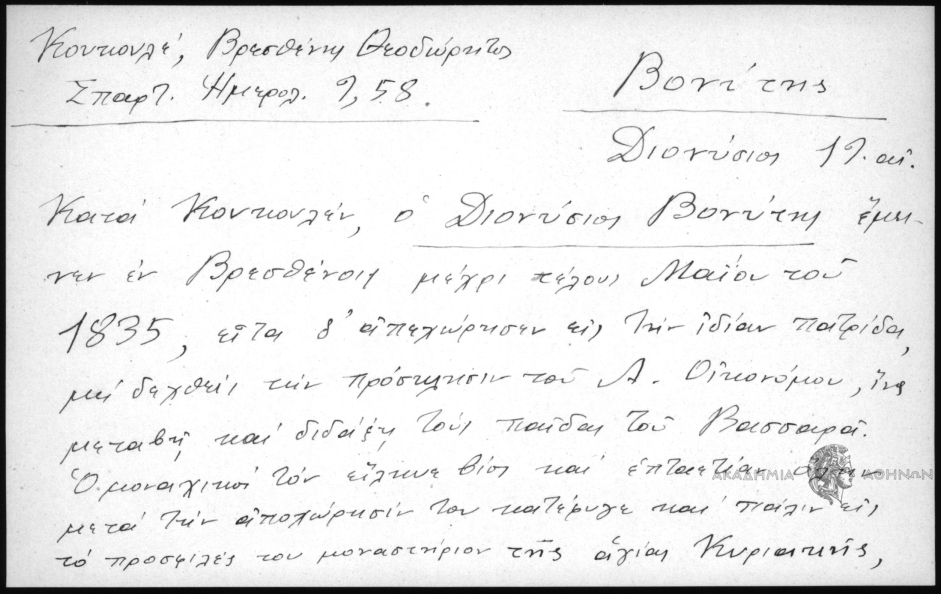 Κουκουλέ, Βρεσθένης Θεοδώρητος
Σπαρτ. Ημερολ. 9, 58.
Βονίτης
Διονύσιος 19. αἰ.
Κατά Κουκουλέν, ὁ Διονύσιος Βονίτης ἔμει-
νεν ἐν Βρεσθένοις μέχρι τέλους Μαΐου τοῦ
1835, εἶτα δ' ἀπεχώρησεν εἰς τήν ἰδίαν πατρίδα,
μή δεχθείς τήν πρόσκλησιν τοῦ Λ. Οἰκονόμου, ἵνα
μεταβῇ καί διδάξῃ τούς παῖδας τοῦ Βασσαρᾶ.
Ὁ μοναχικός τόν εἵλκυε βίος καί ἑπταετίαν
μετά τήν ἀποχώρησίν του κατέφυγε καί πάλιν εἰς
τό προσφιλές του μοναστήριον τῆς ἁγίας Κυριακῆς,
ΑΚΑΔΗΜΙΑ ΑΘΗΝΩΝ